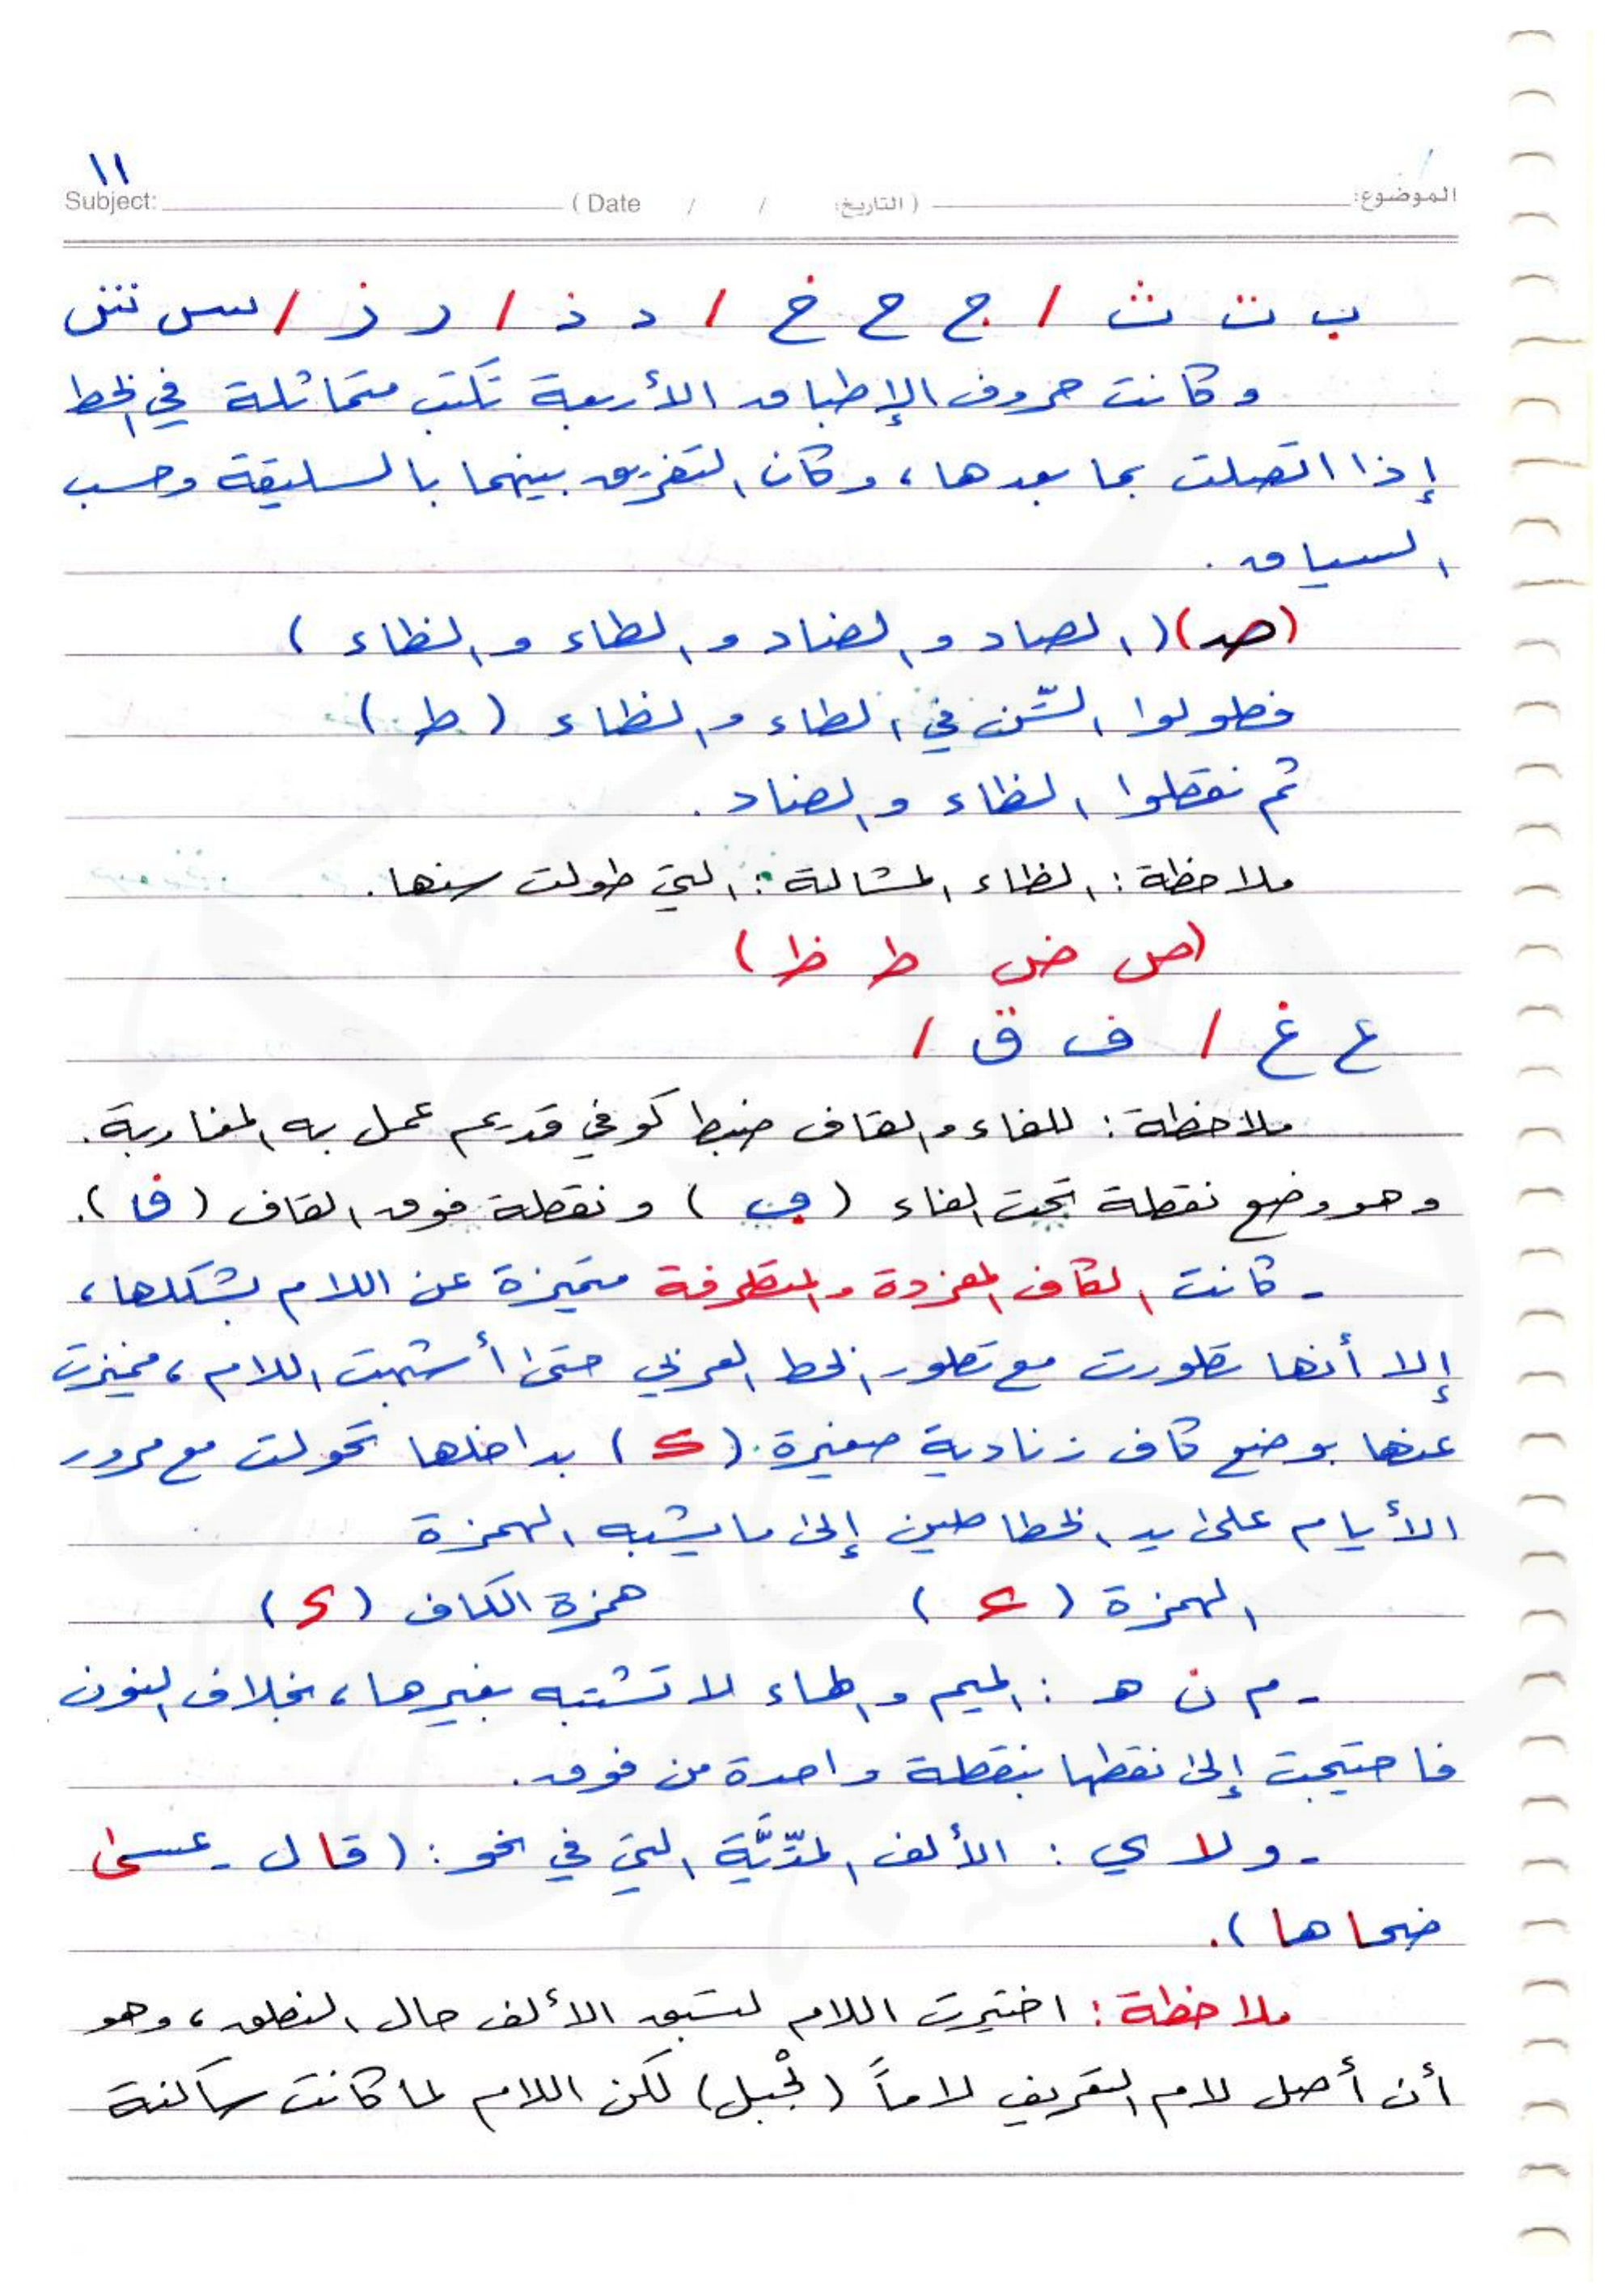 ١١
Subject: ( Date / / التاريخ: ) الموضوع:
ب ت ث / ج ح خ / د ذ / ر ز / س ش
وكانت حروف الإطباق الأربعة تكتب متماثلة في الخط
إذا اتصلت بما بعدها، وكان التفريق بينهما بالسليقة وحسب
السياق.
(صـ) (الصاد والضاد والطاء والظاء)
فطولوا السّن في الطاء والظاء (ط)
ثم نقطوا الظاء والضاد.
ملاحظة: الظاء المشالة: التي طولت سنها.
(ص ض ط ظ)
ع غ / ف ق /
ملاحظة: للفاء والقاف ضبط كوفي قديم عمل به المغاربة.
وهو وضع نقطة تحت الفاء (ڢ) ونقطة فوق القاف (ڧا).
- كانت الكاف المفردة والمتطرفة متميزة عن اللام بشكلها،
إلا أنها تطورت مع تطور الخط العربي حتى أشبهت اللام، فميزت
عنها بوضع كاف زنادية صغيرة (ک) بداخلها تحولت مع مرور
الأيام على يد الخطاطين إلى ما يشبه الهمزة
الهمزة (ء) همزة الكاف (S)
- م ن هـ : الميم والهاء لا تشتبه بغيرها، بخلاف النون
فاحتيجت إلى نقطها بنقطة واحدة من فوق.
- و لا ي : الألف المدّيَّة التي في نحو: (قال - عسى
ضحاها).
ملاحظة: اختيرت اللام لتسبق الألف حال النطق، وهو
أن أصل لام التعريف لاماً (لْجبل) لكن اللام لما كانت ساكنة